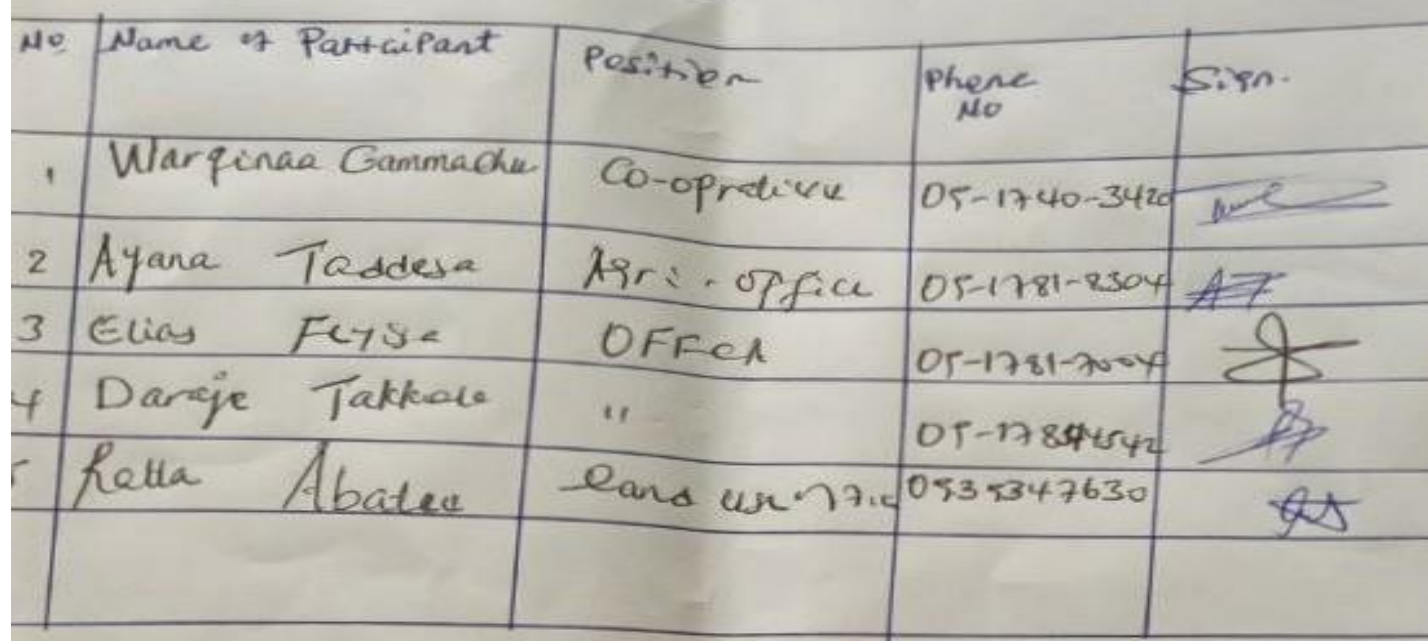 No Name of Participant Position Phone No Sign.
1 Warqinaa Gammachu Co-opretive 05-1740-3420
2 Ayana Taddesa Agri. office 05-1781-8304
3 Elias OFFer 05-1781-7004
4 Dareje Takkele "
5 Retta Abatee land use 0535347630